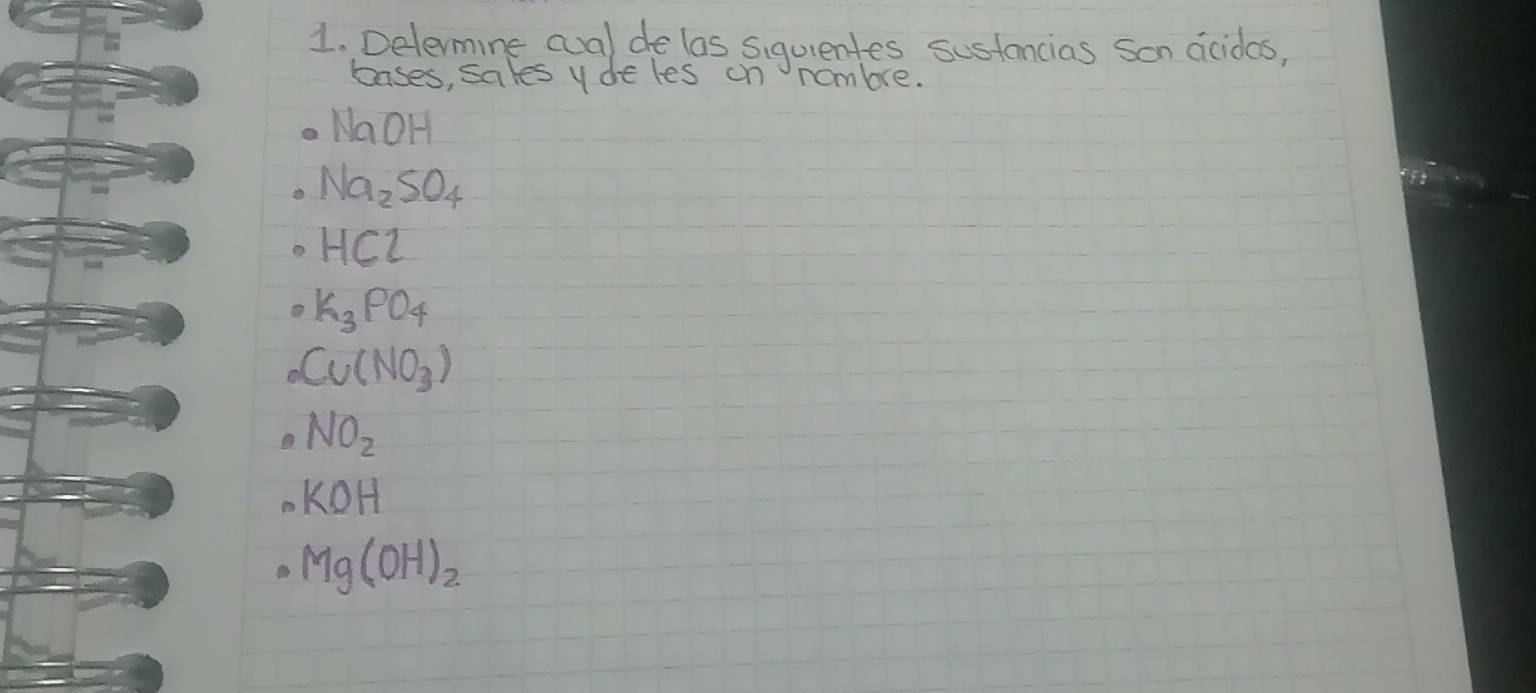 1. Determine cual de las siguientes sustancias son ácidos,
bases, sales y de les un nombre.
• NaOH
• Na₂SO₄
• HCl
• K₃PO₄
• Cu(NO₃)
• NO₂
• KOH
• Mg(OH)₂